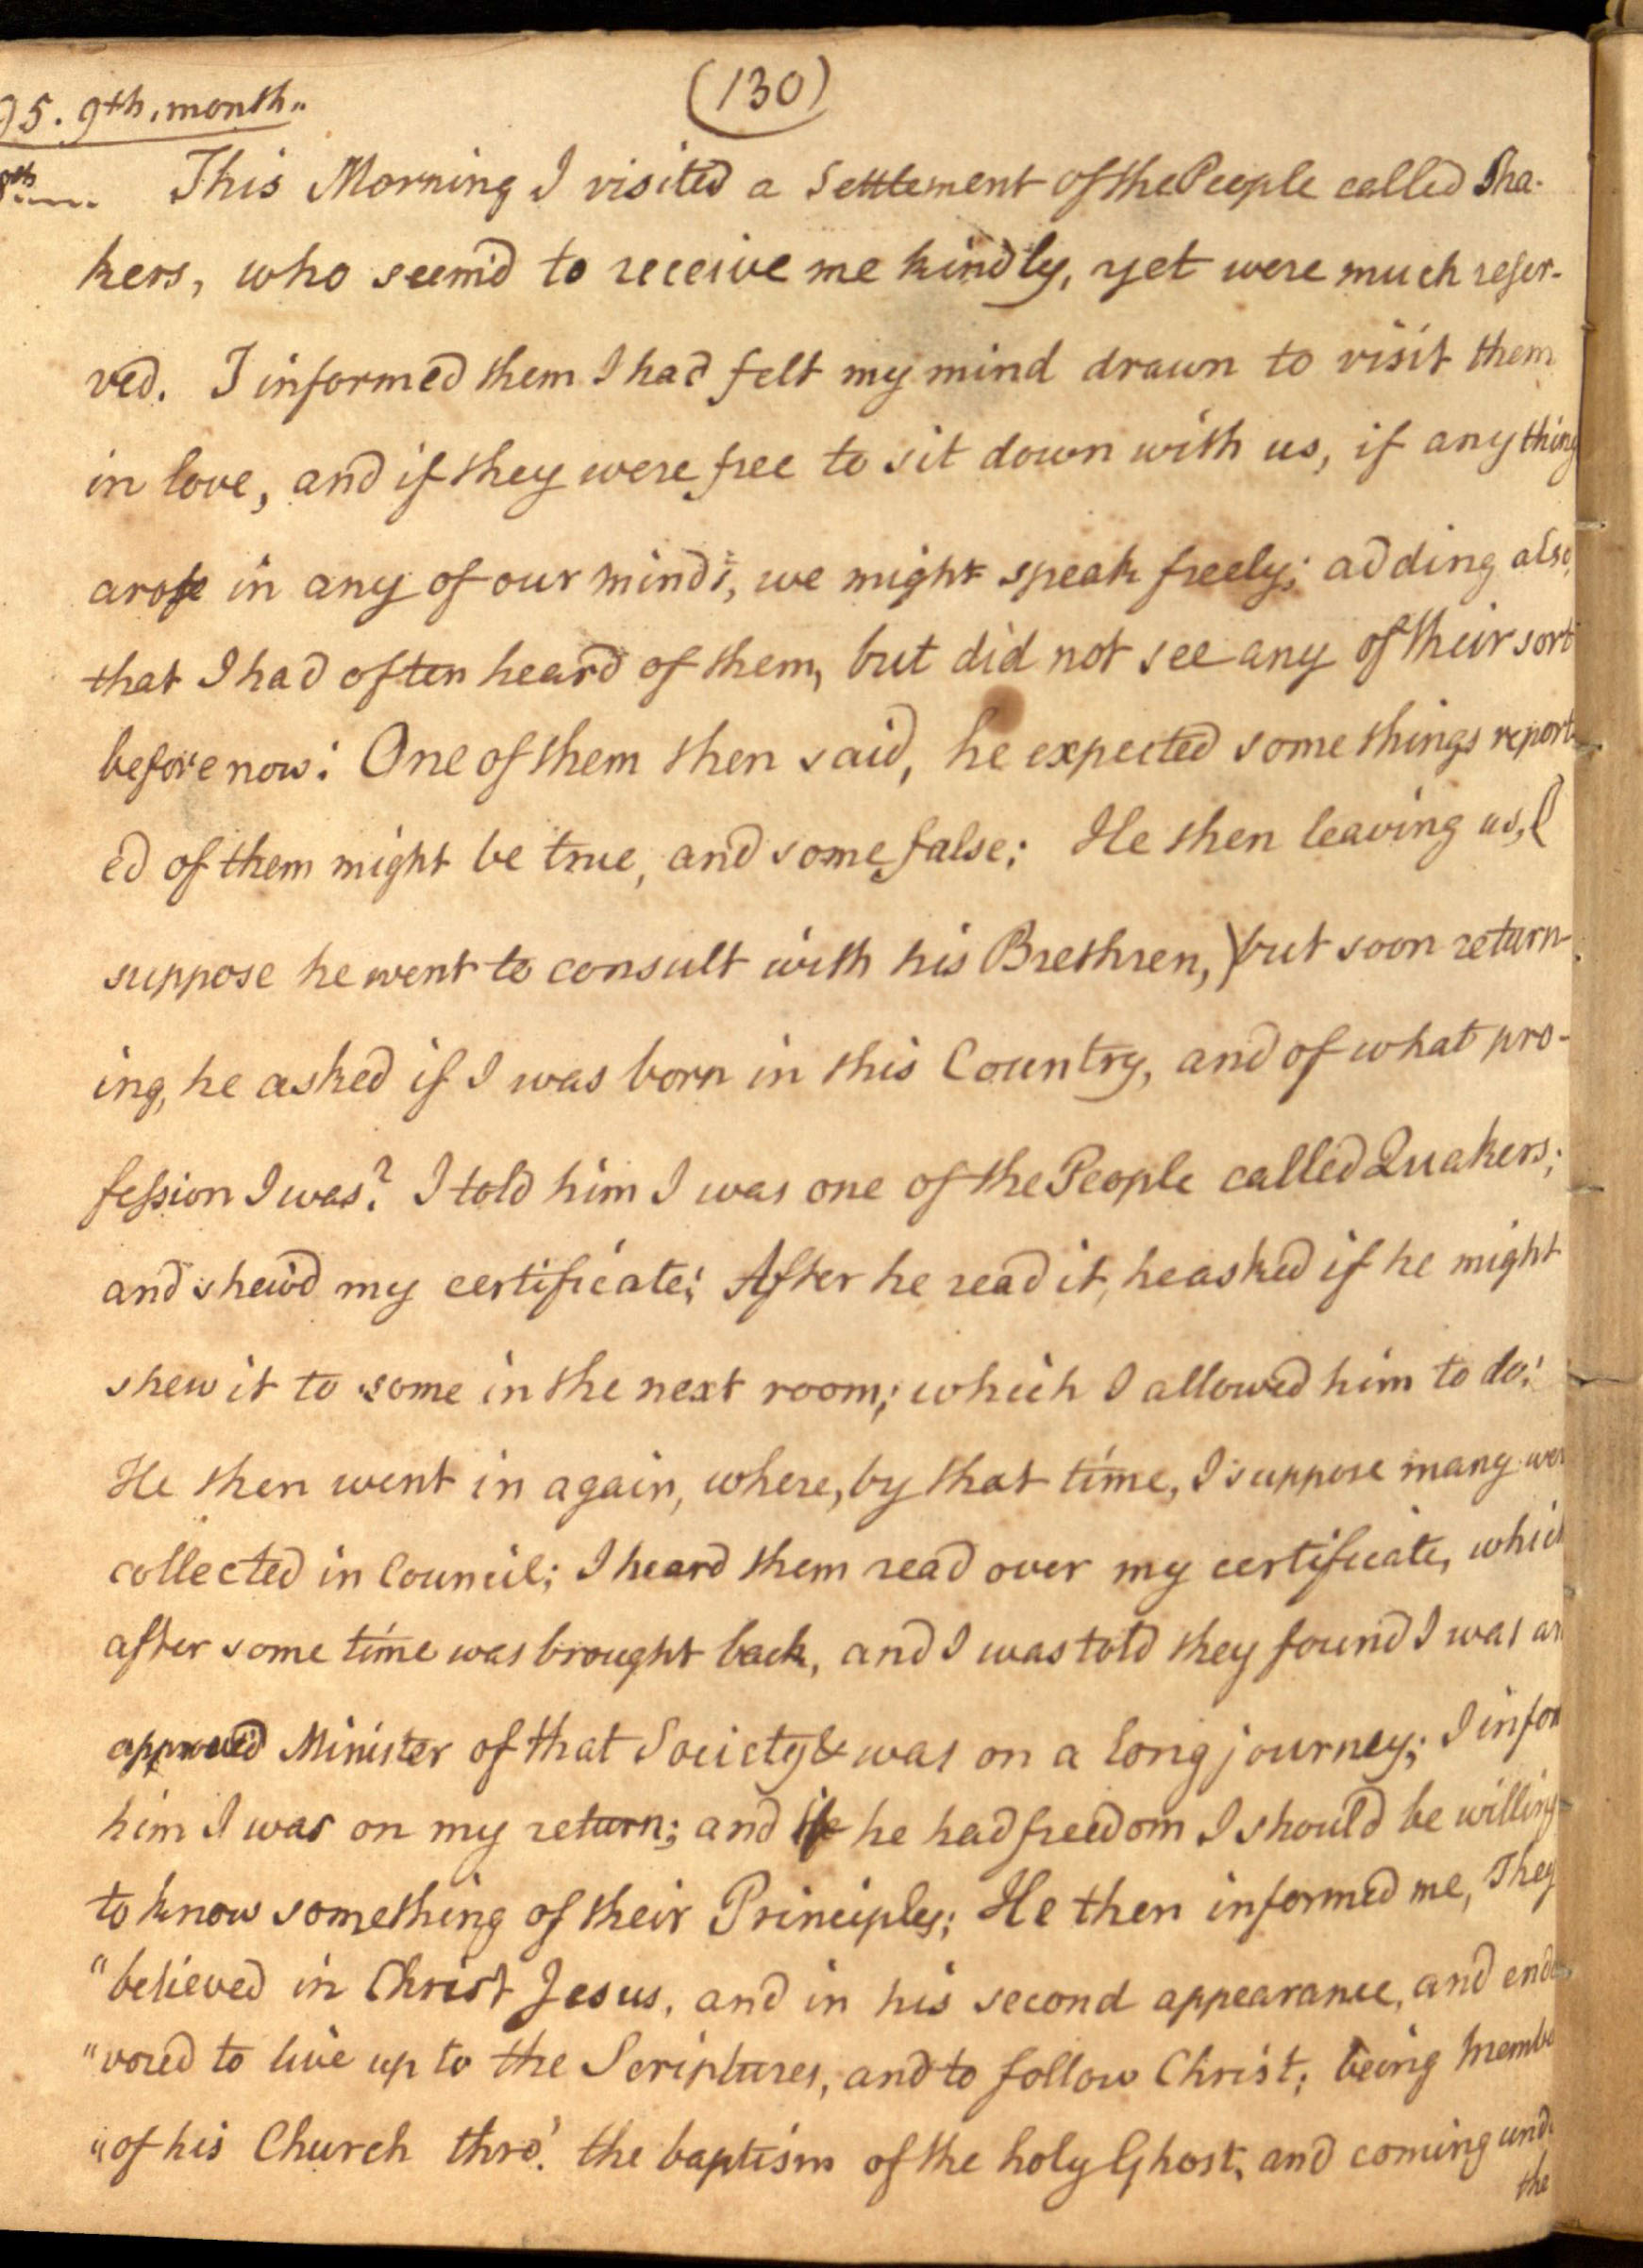 (130)
95. 9th. month.
8th. This Morning I visited a Settlement of the People called Sha-
kers, who seem'd to receive me kindly, yet were much reser-
ved. I informed them I had felt my mind drawn to visit them
in love, and if they were free to sit down with us, if any thing
arose in any of our minds, we might speak freely; adding also,
that I had often heard of them, but did not see any of their sort
before now: One of them then said, he expected some things report-
ed of them might be true, and some false; He then leaving us, (I
suppose he went to consult with his Brethren,) but soon return-
ing, he asked if I was born in this Country, and of what pro-
fession I was? I told him I was one of the People called Quakers;
and shew'd my certificate; After he read it, he asked if he might
shew it to some in the next room; which I allowed him to do:
He then went in again, where, by that time, I suppose many wer
collected in Council; I heard them read over my certificate, which
after some time was brought back, and I was told they found I was an
approved Minister of that Society & was on a long journey; I infor
him I was on my return; and if he had freedom I should be willing
to know something of their Principles; He then informed me, They
"believed in Christ Jesus, and in his second appearance, and endea
"vored to live up to the Scriptures, and to follow Christ; being Membe
"of his Church thro' the baptism of the holy Ghost, and coming und
the